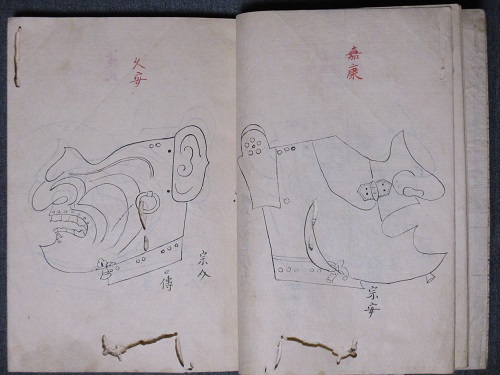 嘉康
宗安
久安
宗久
傳